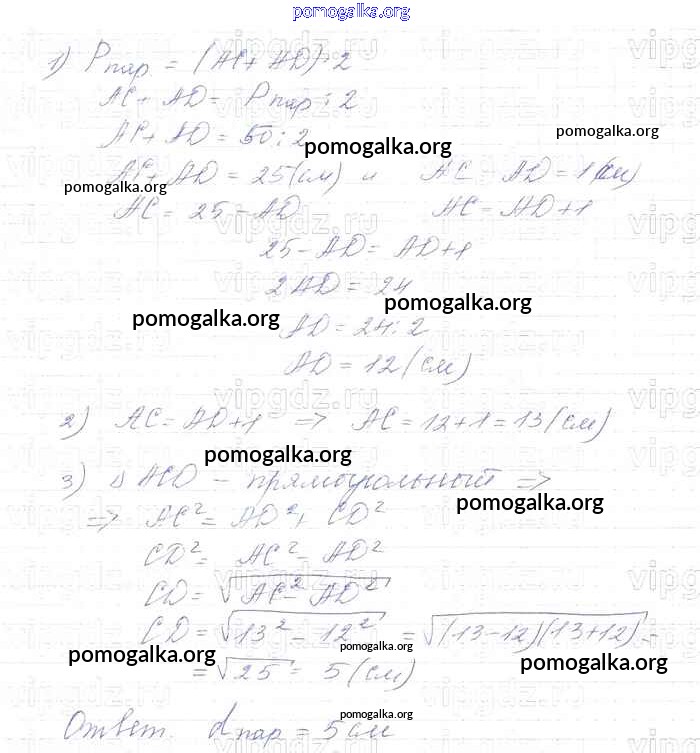 pomogalka.org
1) Pпар. = (AC + AD) · 2
AC + AD = Pпар : 2
AC + AD = 50 : 2
pomogalka.org
pomogalka.org
AC + AD = 25 (см) и AC - AD = 1 (см)
pomogalka.org
AC = 25 - AD AC = AD + 1
25 - AD = AD + 1
2AD = 24
pomogalka.org
pomogalka.org
AD = 24 : 2
AD = 12 (см)
2) AC = AD + 1 => AC = 12 + 1 = 13 (см)
pomogalka.org
3) Δ ACD - прямоугольный =>
pomogalka.org
=> AC² = AD² + CD²
CD² = AC² - AD²
CD = √AC² - AD²
CD = √13² - 12² = √(13-12)(13+12) =
pomogalka.org
pomogalka.org
pomogalka.org
= √25 = 5 (см)
pomogalka.org
Ответ. dпар = 5 см
vipgdz.ru